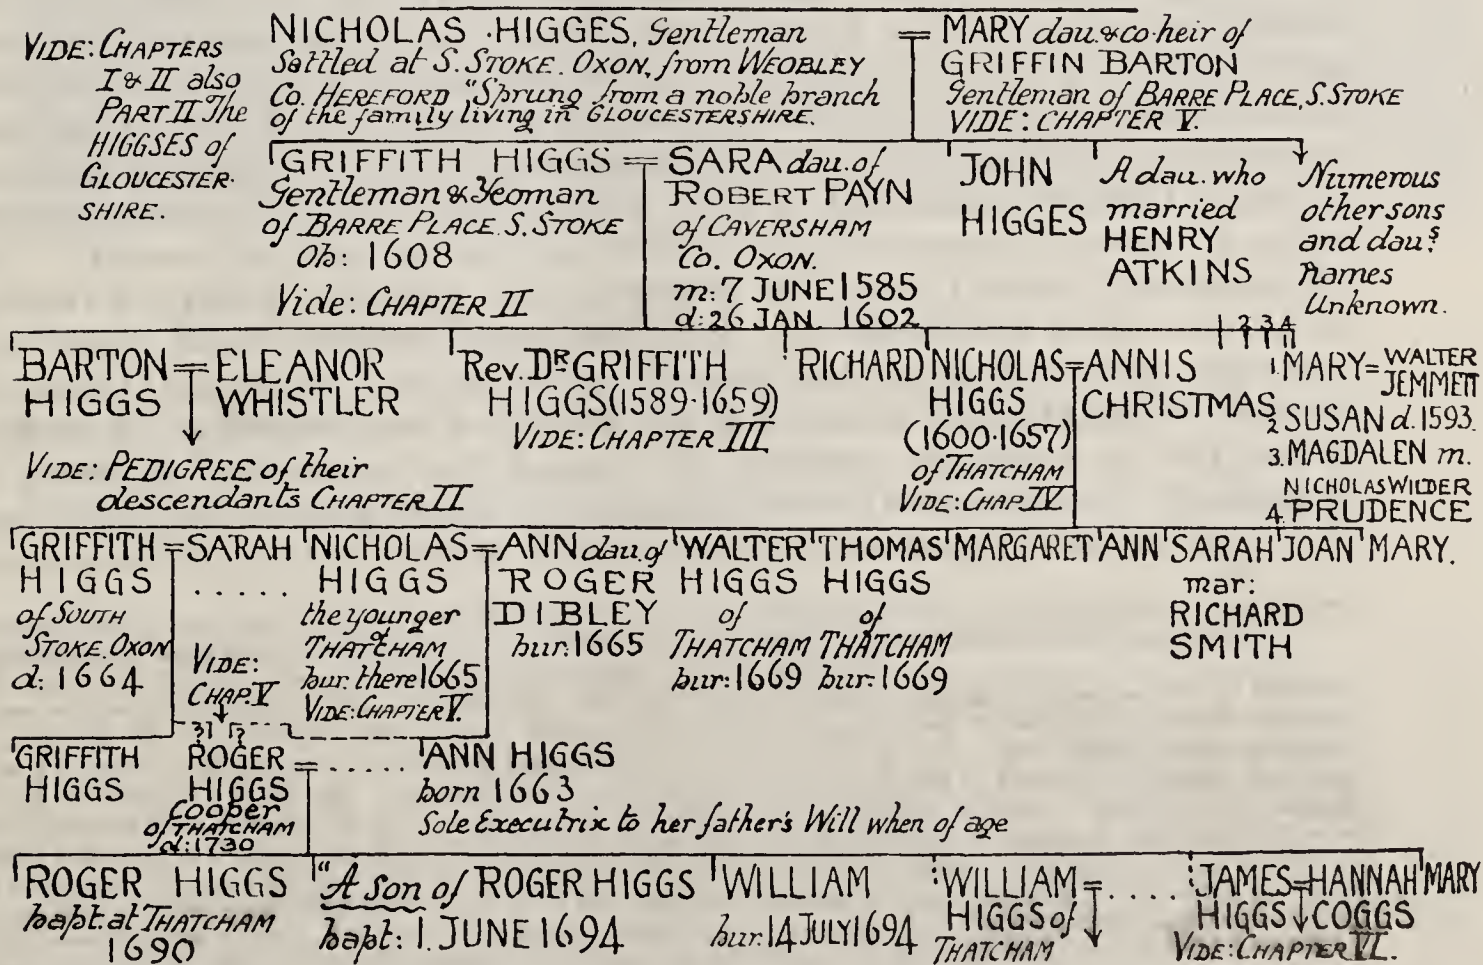 VIDE: CHAPTERS
I & II also
PART II The
HIGGSES of
GLOUCESTER-
SHIRE.
NICHOLAS HIGGES, Gentleman
Settled at S. STOKE. OXON, from WEOBLEY
Co. HEREFORD "Sprung from a noble branch
of the family living in GLOUCESTERSHIRE.
= MARY dau. & co-heir of
GRIFFIN BARTON
Gentleman of BARRE PLACE, S. STOKE
VIDE: CHAPTER V.
GRIFFITH HIGGS =
Gentleman & Yeoman
of BARRE PLACE. S. STOKE
Ob: 1608
Vide: CHAPTER II
SARA dau. of
ROBERT PAYN
of CAVERSHAM
Co. OXON.
m: 7 JUNE 1585
d: 26 JAN. 1602
JOHN
HIGGES
A dau. who
married
HENRY
ATKINS
Numerous
other sons
and daus
names
Unknown.
1 2 3 4
BARTON = ELEANOR
HIGGS WHISTLER
VIDE: PEDIGREE of their
descendants CHAPTER II
Rev. Dr GRIFFITH
HIGGS (1589-1659)
VIDE: CHAPTER III
RICHARD
NICHOLAS = ANNIS
HIGGS CHRISTMAS
(1600-1657)
of THATCHAM
VIDE: CHAP. IV
1. MARY = WALTER
JEMMETT
2 SUSAN d. 1593.
3. MAGDALEN m.
NICHOLAS WILDER
4. PRUDENCE
GRIFFITH = SARAH
HIGGS .....
of SOUTH
STOKE. OXON
d: 1664
VIDE:
CHAP. V
NICHOLAS =
HIGGS
the younger
of
THATCHAM
bur. there 1665
VIDE: CHAPTER V.
ANN dau. of
ROGER
DIBLEY
bur: 1665
WALTER
HIGGS
of
THATCHAM
bur: 1669
THOMAS
HIGGS
of
THATCHAM
bur: 1669
MARGARET
ANN
SARAH
mar:
RICHARD
SMITH
JOAN
MARY.
? ?
GRIFFITH
HIGGS
ROGER = .....
HIGGS
Cooper
of THATCHAM
d: 1730
ANN HIGGS
born 1663
Sole Executrix to her father's Will when of age
ROGER HIGGS
bapt. at THATCHAM
1690
"A son of ROGER HIGGS
bapt: 1. JUNE 1694
WILLIAM
bur. 14 JULY 1694
WILLIAM = ....
HIGGS of
THATCHAM
JAMES = HANNAH
HIGGS COGGS
VIDE: CHAPTER VI.
MARY